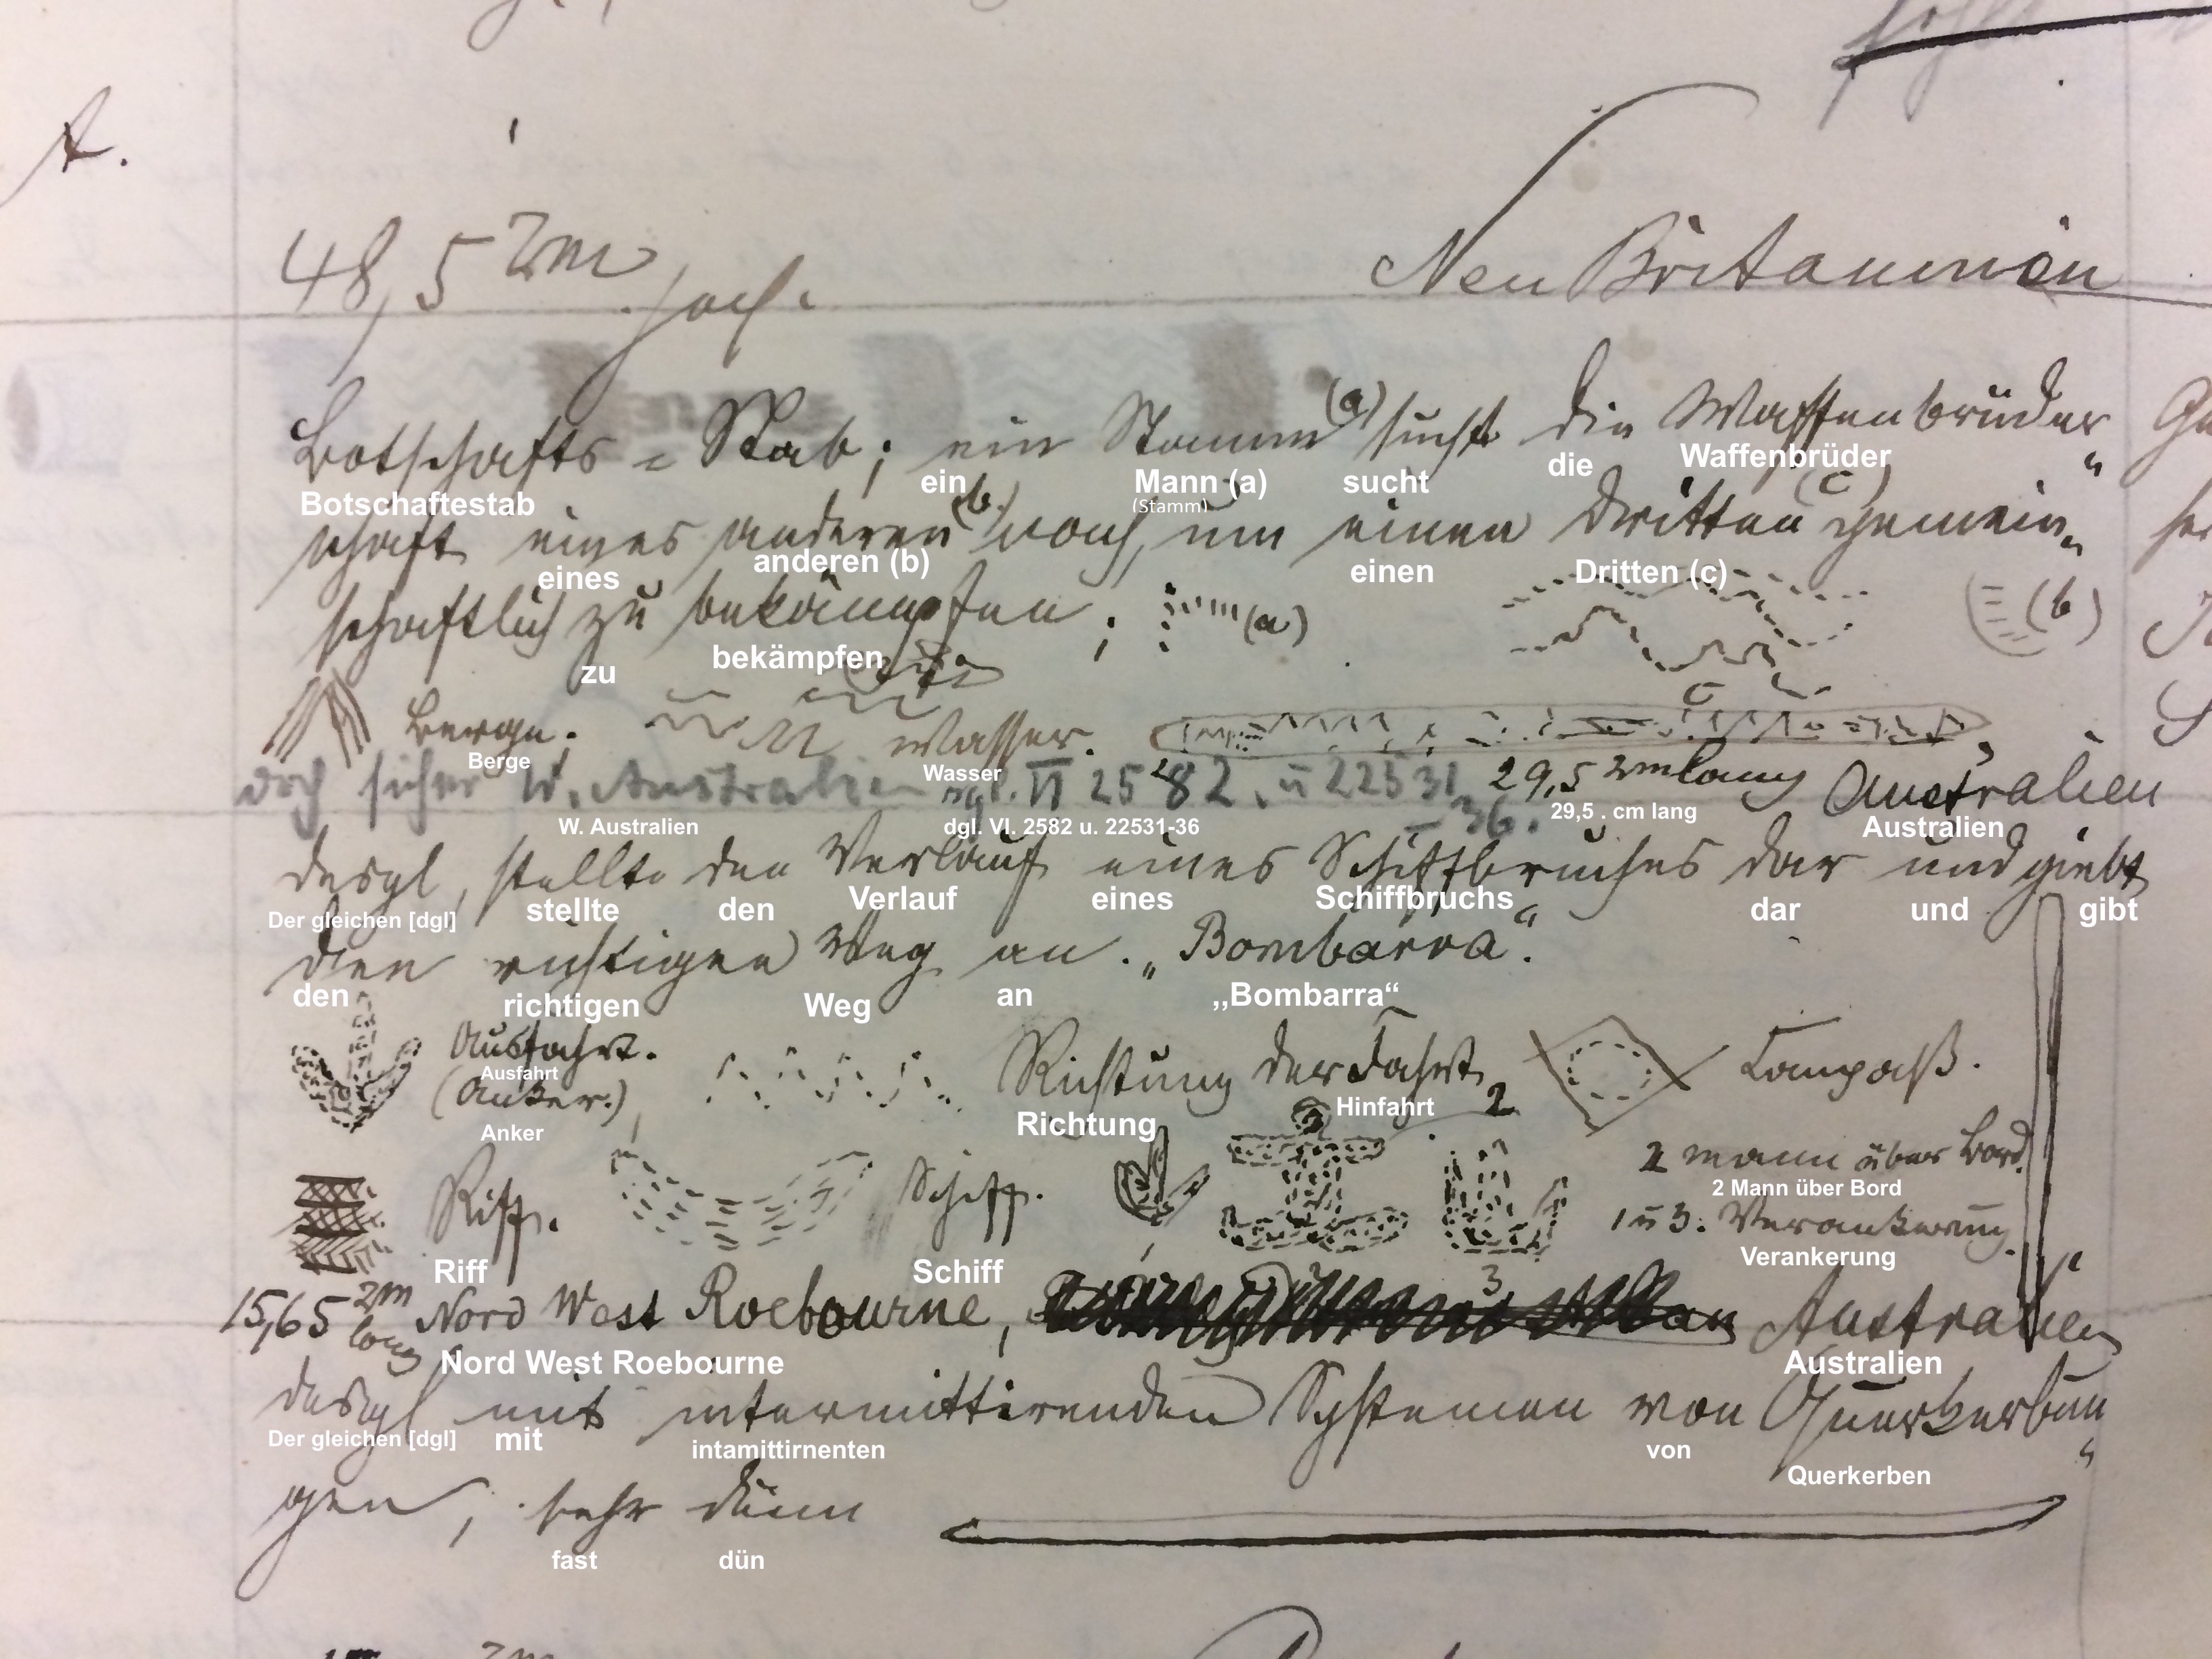 A.
48,5 cm hoch.
Neu Britannien
Botschafts=Stab; ein Stamm (a) sucht die Waffenbrüder„
Botschaftestab ein Mann (a) sucht die Waffenbrüder
(Stamm)
schaft eines anderen (b.) nach, um einen dritten (c) gemein„
eines anderen (b) einen Dritten (c)
schaftlich zu bekämpfen; (a) (b)
zu bekämpfen
Berge; Wasser.
Berge Wasser
doch sicher W. Australien vgl. VI 2582. u 22531-36. 29,5 cm lang Australien
W. Australien dgl. VI. 2582 u. 22531-36 29,5 . cm lang Australien
desgl, stellte den Verlauf eines Schiffbruches dar und giebt
Der gleichen [dgl] stellte den Verlauf eines Schiffbruchs dar und gibt
den richtigen Weg an. „Bombarra“.
den richtigen Weg an ,,Bombarra“
Ausfahrt. Richtung der Fahrt 2 Compaß.
Ausfahrt Hinfahrt
(Anker.)
Anker Richtung
Riff. Schiff. 2 mann über Bord.
2 Mann über Bord
1 u 3. Verankerung.
Riff Schiff Verankerung
1 3
15,65 cm lang Nord West Roebourne, Australien
Nord West Roebourne Australien
desgl mit intermittirenden Systemen von Querkerbun„
Der gleichen [dgl] mit intamittirnenten von Querkerben
gen, sehr dünn
fast dün